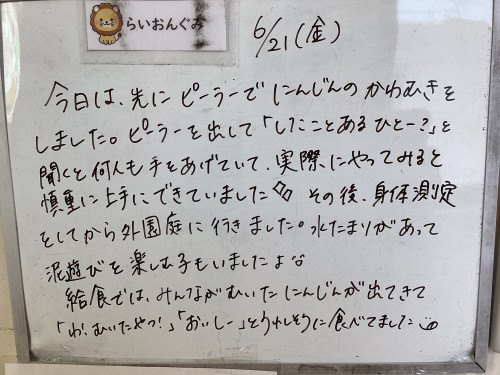 らいおんぐみ
6/21(金)
今日は、先に ピーラーで にんじんの かわむきを
しました。ピーラーを出して「したことあるひとー?」と
聞くと何人も手をあげていて、実際にやってみると
慎重に上手にできていました その後、身体測定
をしてから外園庭に行きました。水たまりがあって
泥遊びを楽しむ子もいましたよ
給食では、みんながむいた にんじんが出てきて
「わ!むいたやつ!」「おいしー」とうれしそうに食べてました